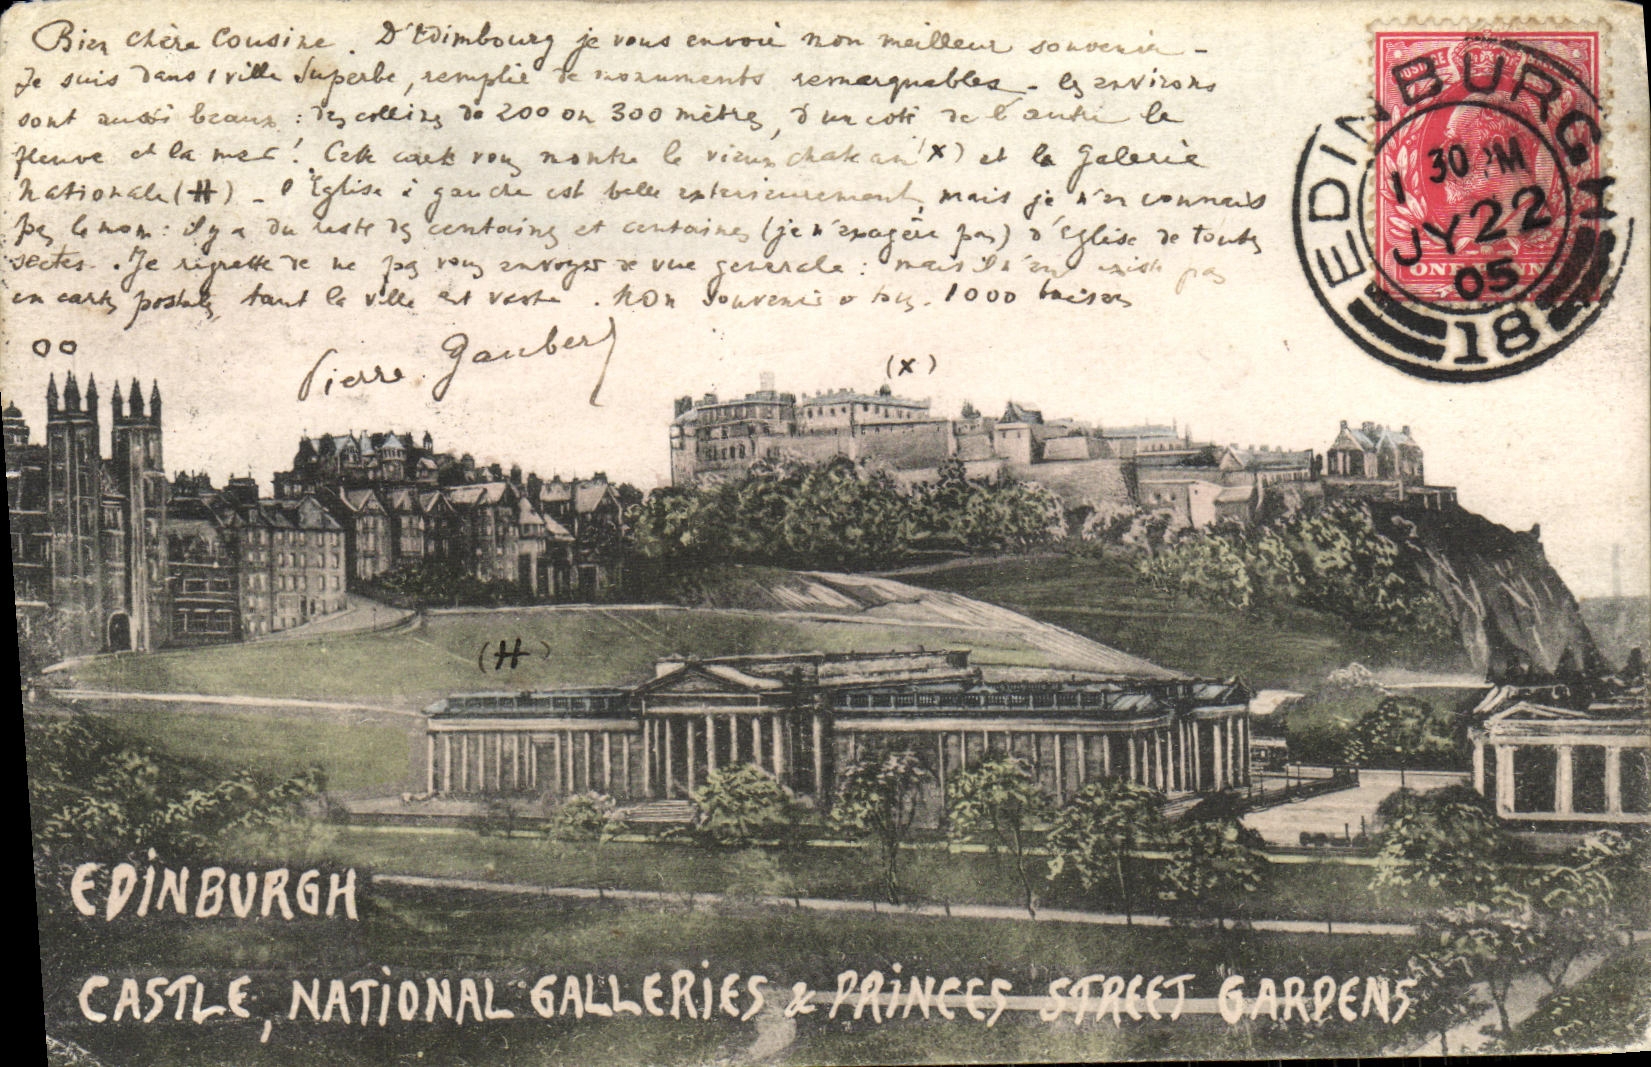 Bien chère Cousine. D'Edimbourg je vous envoie mon meilleur souvenir -
Je suis dans 1 ville superbe, remplie de monuments remarquables - les environs
sont aussi beaux : des collines de 200 ou 300 mètres, d'un coté de l'autre le
fleuve et la mer ! Cette carte vous montre le vieux chateau (X) et la Galerie
Nationale (H) - l'Eglise à gauche est belle exterieurement, mais je n'en connais
pas le nom : il y a du reste des centaines et centaines (je n'exagère pas) d'Eglise de toutes
sectes. Je regrette de ne pas vous envoyer de vue generale : mais il n'en existe pas
en cartes postales, tant la ville est vaste. Mon souvenir à tous. 1000 baisers
Pierre Gaubert
(X)
(H)
EDINBURGH
1 30 PM
JY 22
05
18
H
POSTAGE
ONE PENNY
EDINBURGH
CASTLE, NATIONAL GALLERIES & PRINCES STREET GARDENS